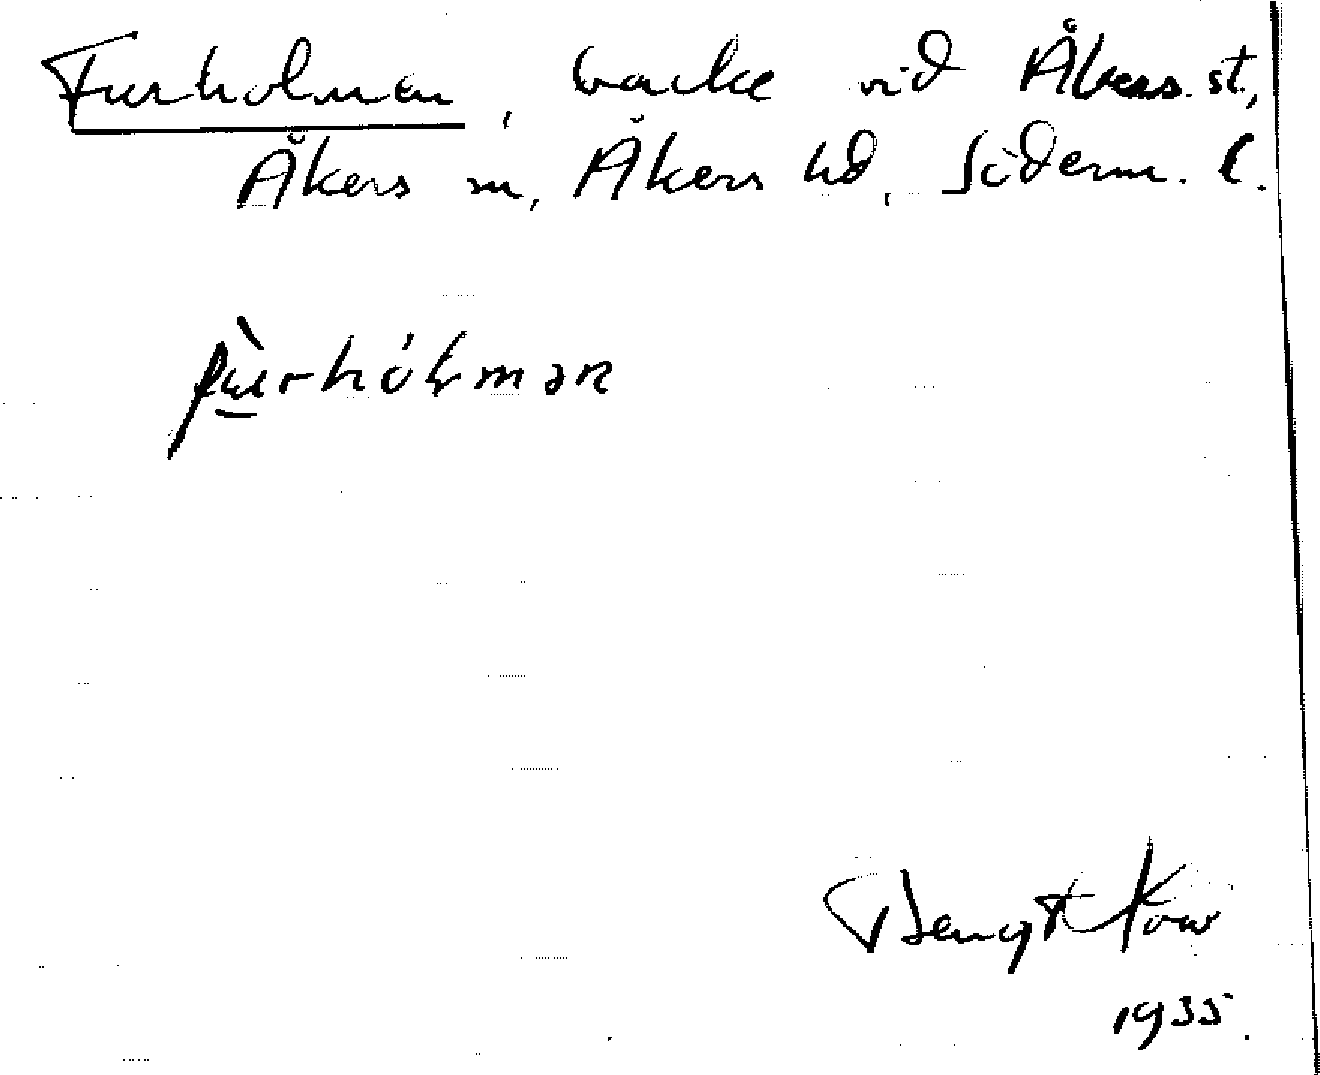 Furholmen, backe vid Åkers st,
Åkers sn, Åkers hd, Söderm. l.
Bengt
1935.